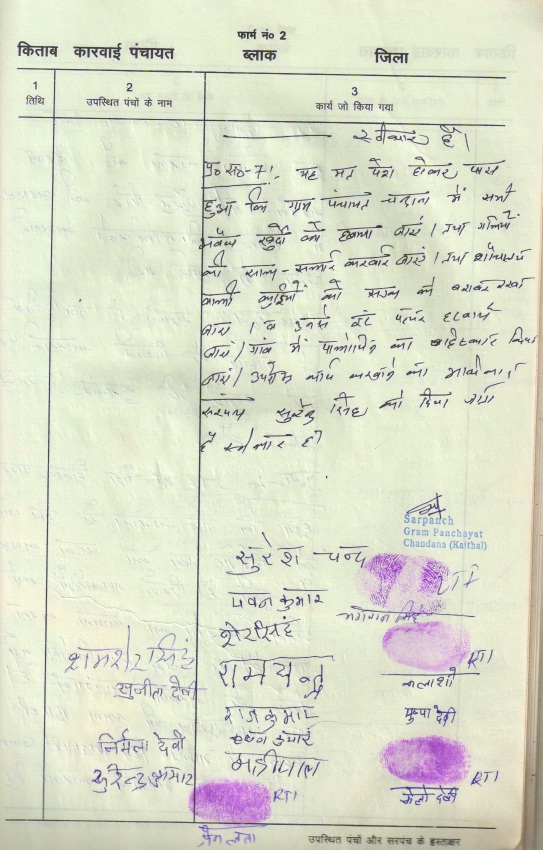 फार्म नं० 2
किताब कारवाई पंचायत ब्लाक जिला
1 2 3
तिथि उपस्थित पंचों के नाम कार्य जो किया गया
स्वीकार है।
प्र० स०-7। यह मत पेश होकर पास
हुआ कि ग्राम पंचायत चन्दाना में सभी
अवैध खुर्दों को हटवाया जाएं। तथा गलियों
की साफ-सफाई करवाई जाएं। तथा शौचालय
वाली को सड़क के बराबर रखा
जाएं। व उनसे ईंट पत्थर हटवाये
जाएं। गांव में पोलीथीन का बहिष्कार किया
जाएं। उपरोक्त कार्य करवाने का
सरपंच सुरेन्द्र सिंह को दिया जाता
है स्वीकार है।
Sarpanch
Gram Panchayat
Chandana (Kaithal)
सुरेश चन्द
LTI
पवन कुमार
भगवान सिंह
शेरसिंह
RTI
शमशेर सिंह
रामचन्द्र
कलाशो
सुजीता देवी
राजकुमार
पुष्पा देवी
कृष्ण कुमार
निर्मला देवी
महीपाल
सुरेन्द्र कुमार
RTI
RTI
केलो देवी
प्रेम लता
उपस्थित पंचों और सरपंच के हस्ताक्षर